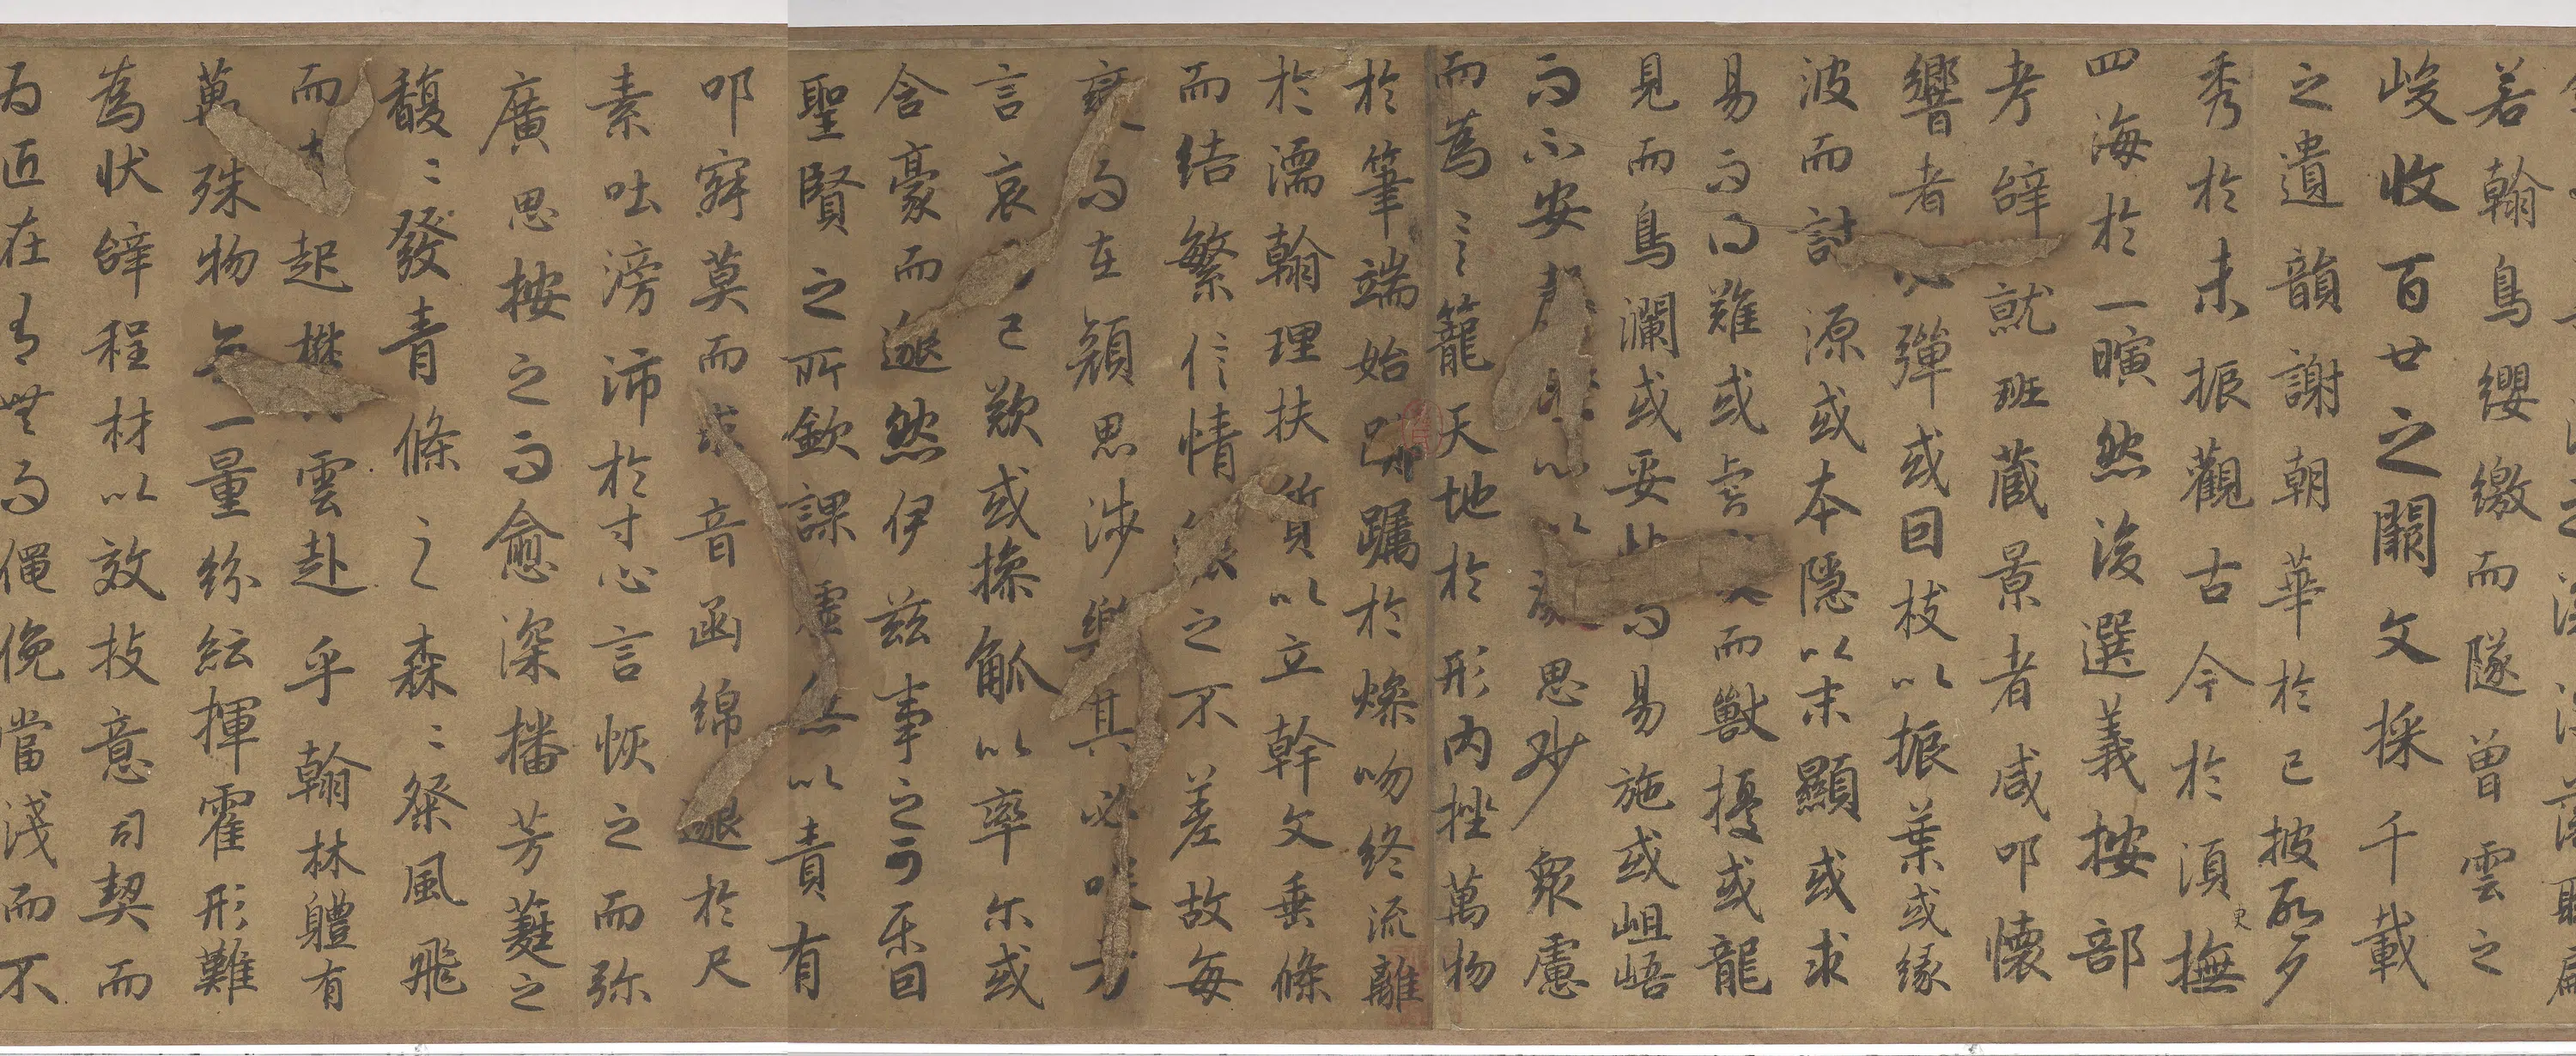 若翰鳥纓繳而隧曾雲之
峻收百世之闕文採千載
之遺韻謝朝華於已披啓夕
秀於未振觀古今於須臾撫
四海於一瞚然後選義按部
考辭就班藏景者咸叩懷
響者必彈或因枝以振葉或緣
波而討源或本隱以末顯或求
易而得難或虎而獸擾或龍
見而鳥瀾或妥帖而易施或岨峿
而不安心以凝思眇衆慮
而為言籠天地於形內挫萬物
於筆端始躑躅於燥吻終流離
於濡翰理扶質以立幹文垂條
而結繁信情貌之不差故每
變而在顏思涉樂其必笑方
言哀已歎或操觚以率尔或
含豪而邈然伊茲事之可樂固
聖賢之所欽課虛無以責有
叩寂莫而求音函綿邈於尺
素吐滂沛於寸心言恢之而弥
廣思按之而愈深播芳蕤之
馥〻發青條之森〻粲風飛
而起欝雲赴乎翰林體有
萬殊物無一量紛紜揮霍形難
為狀辭程材以效技意司契而
為匠在有無而僶俛當淺而不